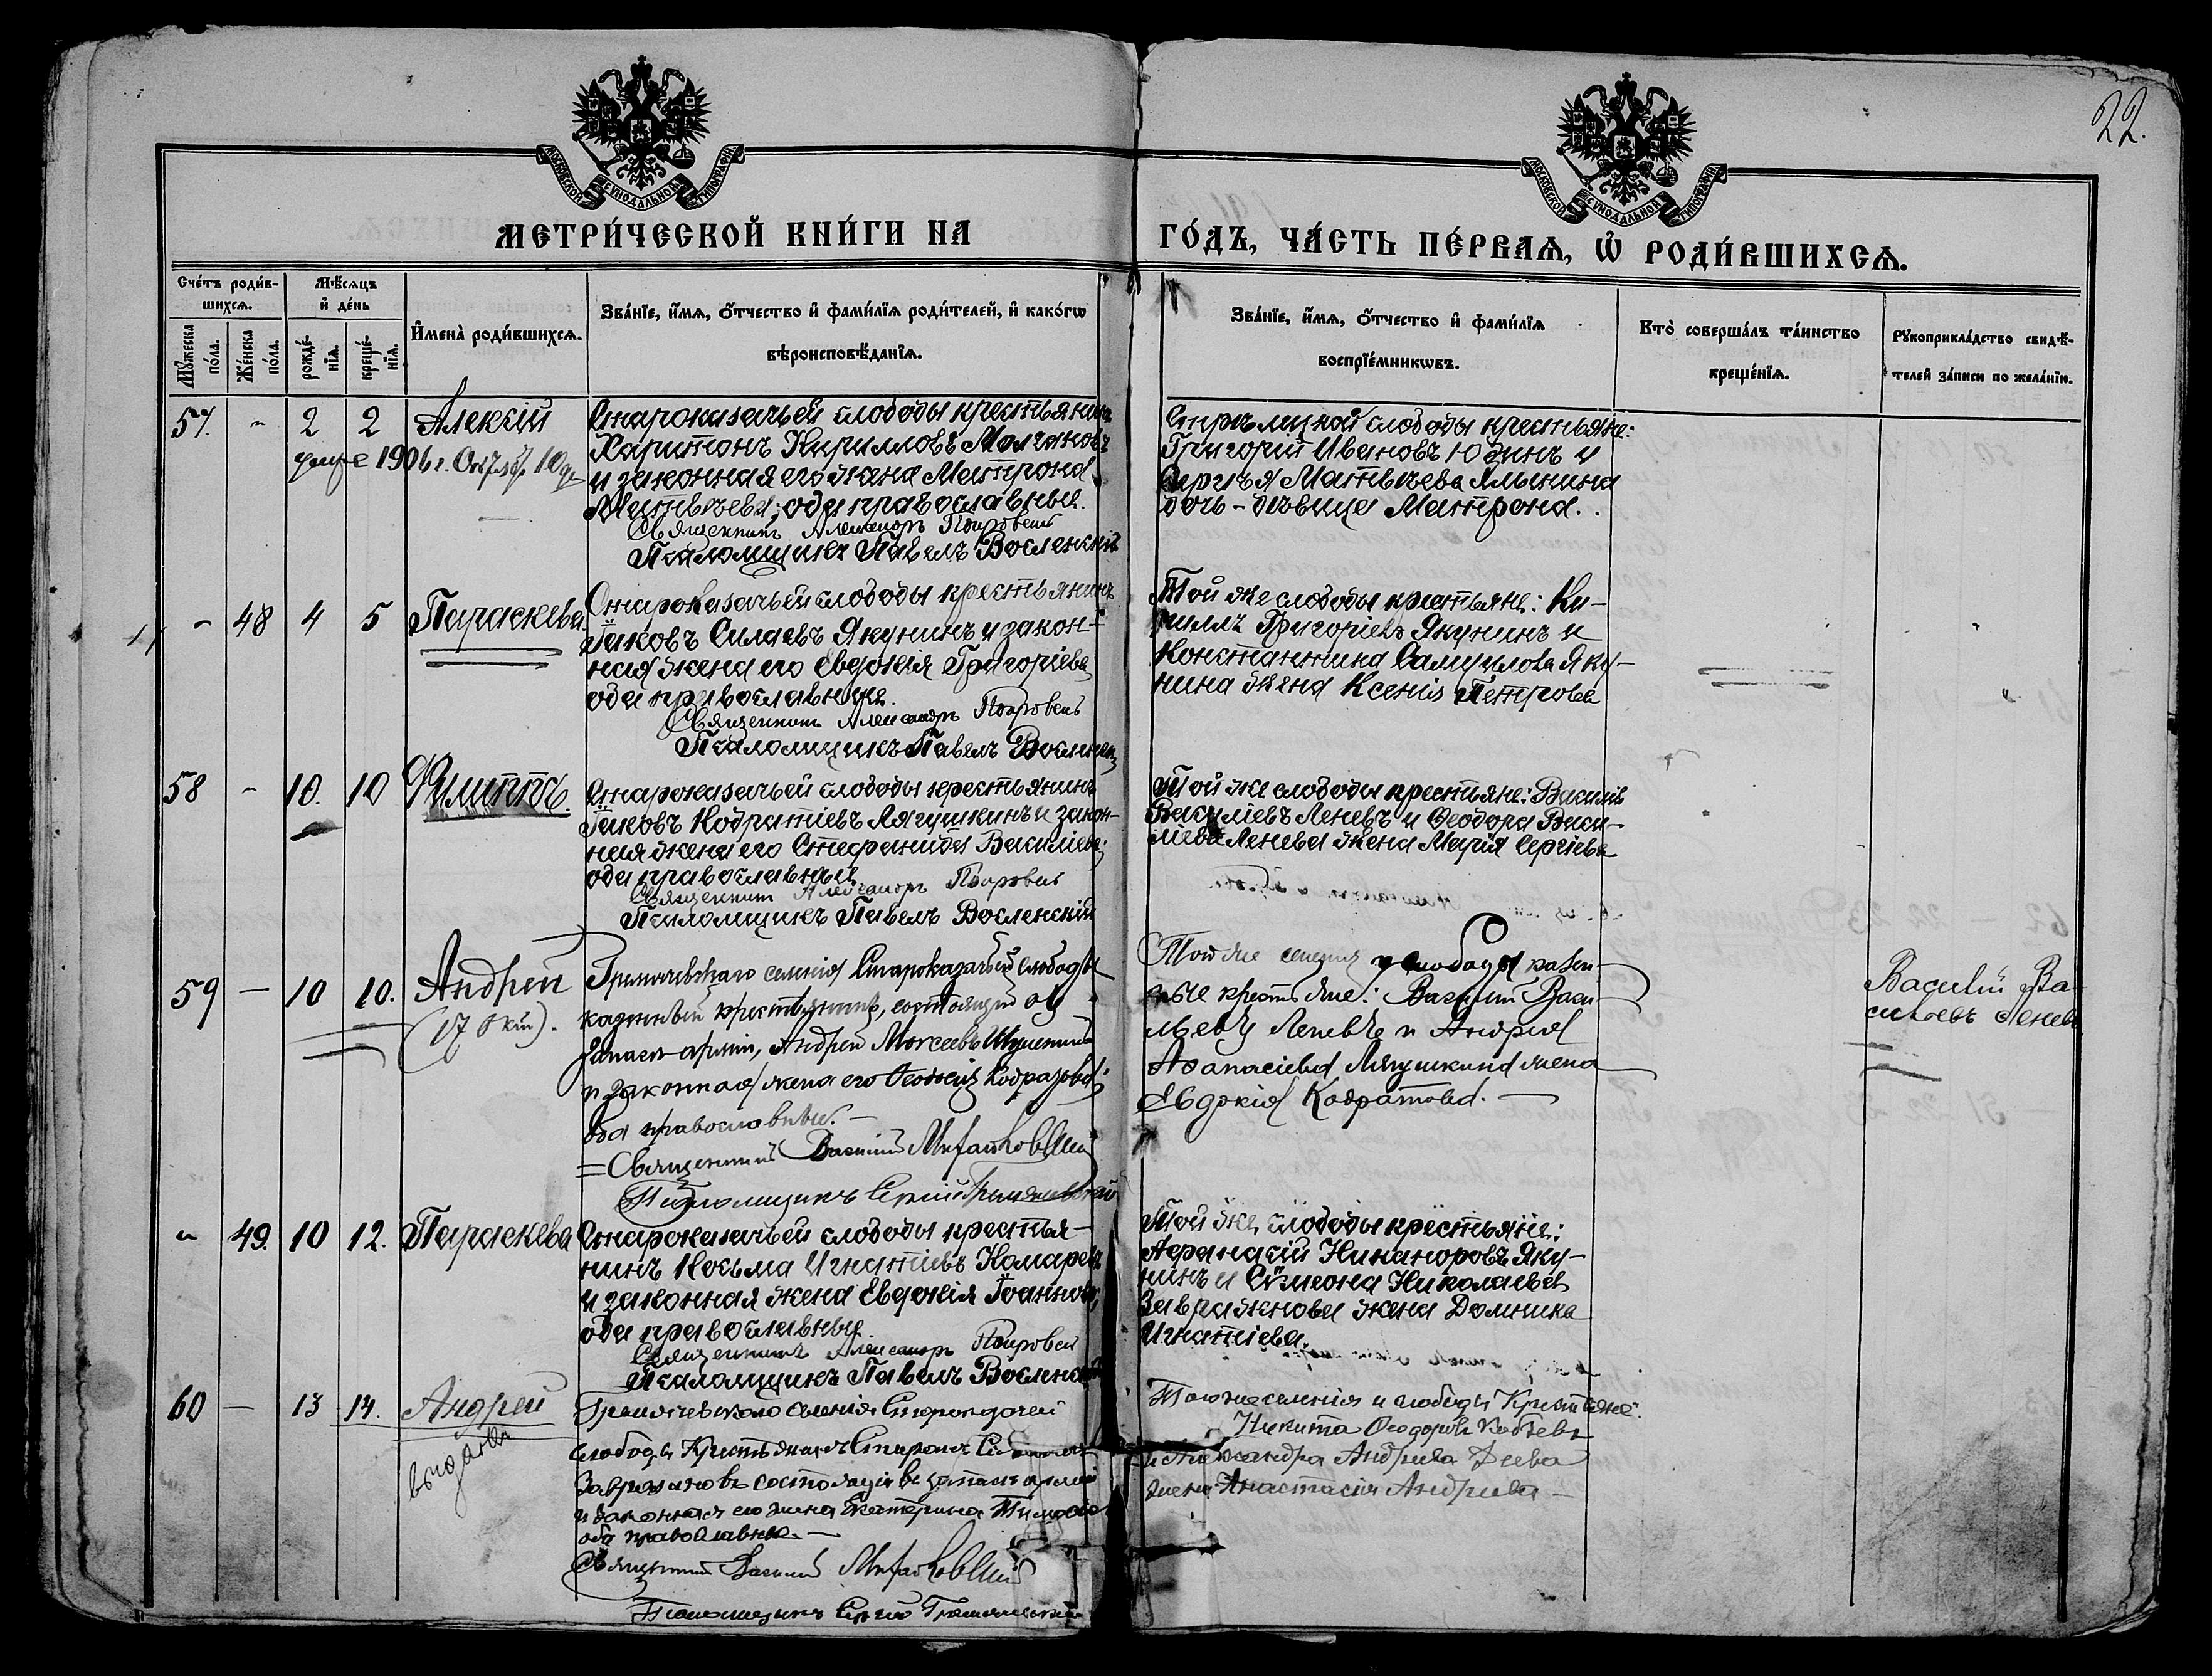 22.
МОСКОВСКОЙ СѴНОДАЛЬНОЙ ТИПОГРАФІИ
МОСКОВСКОЙ СѴНОДАЛЬНОЙ ТИПОГРАФІИ
МЕТРИ́ЧЕСКОЙ КНИ́ГИ НА ГО́ДЪ, ЧА́СТЬ ПЕ́РВАѦ, Ѿ РОДИ́ВШИХСѦ.
Сче́тъ роди́в-
шихсѧ.
Мꙋ́жеска по́ла.
Же́нска по́ла.
Мѣ́сѧцъ
и҆ де́нь
рожде́-
нїѧ.
креще́-
нїѧ.
И҆мена̀ роди́вшихсѧ.
Зва́нїе, и҆́мѧ, ѻ҆́тчество и҆ фами́лїѧ роди́телей, и҆ како́гѡ
вѣроисповѣ́данїѧ.
Зва́нїе, и҆́мѧ, ѻ҆́тчество и҆ фами́лїѧ
воспрїе́мникѡвъ.
Кто̀ соверша́лъ та́инство
креще́нїѧ.
Рꙋкоприкла́дство свидѣ́-
телей за́писи по жела́нїю.
57. - 2 2 Алексій
1906 г. 10
Староказачьей слободы крестьянинъ
Харитонъ Кирилловъ Молчановъ
и законная его жена Матрона
Матвѣева; оба православные.
Священникъ Александръ Покровскій
Псаломщикъ Павелъ Восленскій
слободы крестьяне:
Григорій Ивановъ Юдинъ и
Матвѣева
дочь-дѣвица Матрона.
- 48 4 5 Параскева
Староказачьей слободы крестьянинъ
Іаковъ Силаевъ Якунинъ и закон-
ная жена его Евдокія Григоріева
оба православные.
Священникъ Александръ Покровскій
Псаломщикъ Павелъ Восленскій
Той же слободы крестьяне: Ки-
риллъ Григоріевъ Якунинъ и
Константина Самуилова Яку-
нина жена Ксенія Петрова
58 - 10. 10 Филиппъ.
Староказачьей слободы крестьянинъ
Іаковъ Кодратіевъ Лягушкинъ и закон-
ная жена его Стефанида Василіева;
оба православные
Священникъ Александръ Покровскій
Псаломщикъ Павелъ Восленскій
Той же слободы крестьяне: Василій
Василіевъ Леневъ и Ѳеодора Васи-
ліева Ленева жена Марія Сергіева
59 - 10 10. Андрей
Гремячевскаго селенія Староказачьей слободы
крестьянинъ, состоящій въ
запасѣ арміи, Андрей Моисеевъ
и законная жена его Кодратова;
оба православные. —
Священникъ Василій
Псаломщикъ Сергій Гремячевскій
Той же селенія и слободы казен-
ные крестьяне: Василій Васи-
льевъ Леневъ и Андрея
Аѳанасіева Лягушкина жена
Евдокія Кодратова. —
Василій Ва-
сильевъ Леневъ
- 49. 10 12. Параскева
Староказачьей слободы крестья-
нинъ Косьма Игнатіевъ Комаревъ
и законная жена Евдокія Іоаннова,
оба православные.
Священникъ Александръ Покровскій
Псаломщикъ Павелъ Восленскій
Той же слободы крестьяне:
Аѳанасій Никаноровъ Яку-
нинъ и Сѵмеона Николаева
Завражнова жена Домника
Игнатіева.
60 — 13 14. Андрей
выдана
Гремячевскаго селенія Староказачей
слободы Крестьянинъ Спиридонъ
Завражновъ состоящій въ запасѣ арміи
и законная его жена Екатерина
оба православные. —
Священникъ Василій
Псаломщикъ Сергій Гремячевскій
Того же селенія и слободы Крестьяне:
Никита Ѳеодоровъ
и Александра Андреева Деева
жена Анастасія Андреева —